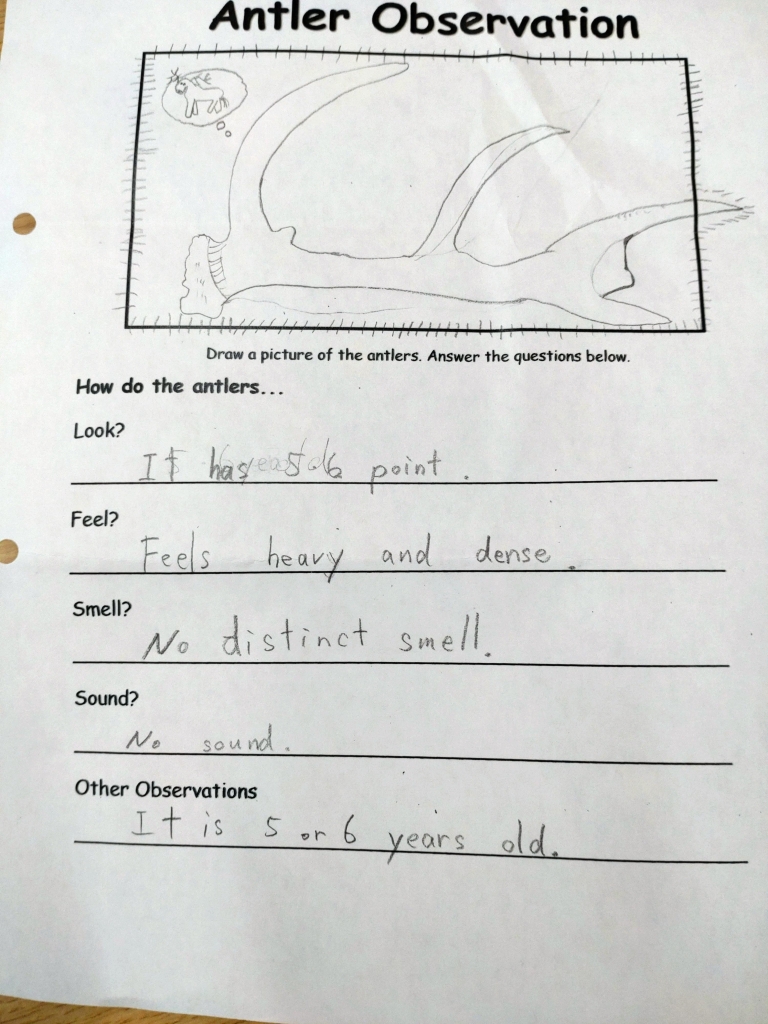 Antler Observation
Draw a picture of the antlers. Answer the questions below.
How do the antlers...
Look?
It has 5 6 point.
Feel?
Feels heavy and dense.
Smell?
No distinct smell.
Sound?
No sound.
Other Observations
It is 5 or 6 years old.